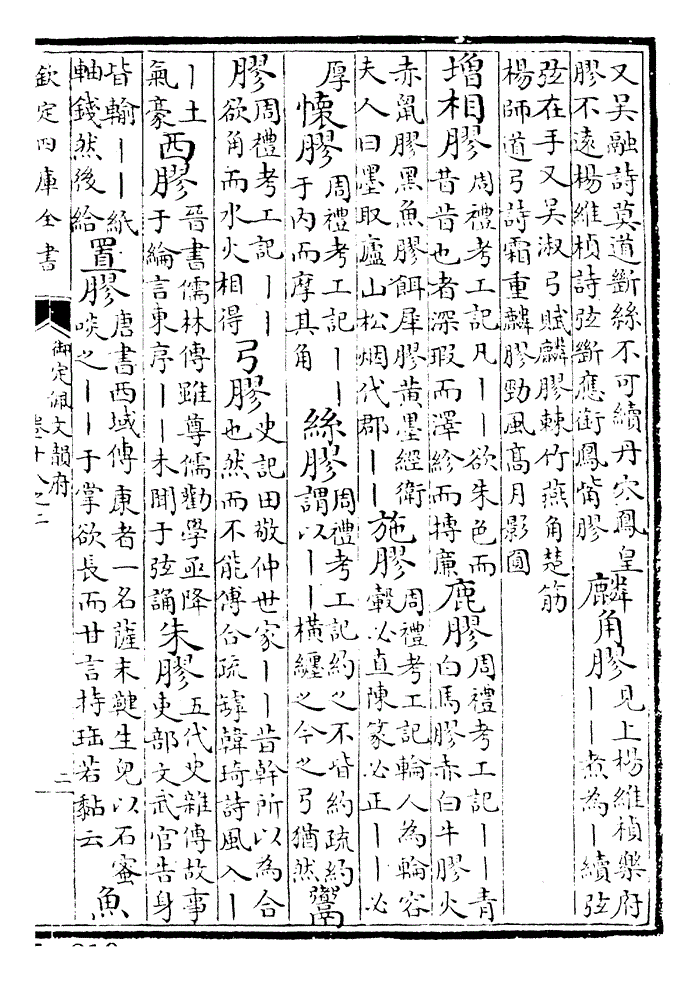 又吳融詩莫道斷絲不可續丹穴鳳皇膠不遠楊維楨詩弦斷應銜鳳觜膠麟角膠見上楊維楨樂府丨丨煮為丨續弦
弦在手又吳淑弓賦麟膠棘竹燕角楚筋楊師道弓詩霜重麟膠勁風高月影圓
增相膠周禮考工記凡丨丨欲朱色而昔昔也者深瑕而澤紾而摶廉鹿膠周禮考工記丨丨青白馬膠赤白牛膠火
赤鼠膠黑魚膠餌犀膠黃墨經衛夫人曰墨取廬山松烟代郡丨丨施膠周禮考工記輪人為輪容轂必直陳篆必正丨丨必
厚懷膠周禮考工記丨丨于内而摩其角絲膠周禮考工記約之不皆約疏約謂以丨丨橫纏之今之弓猶然鬻
膠周禮考工記丨丨欲角而水火相得弓膠史記田敬仲世家丨丨昔幹所以為合也然而不能傅合疏罅韓琦詩風入丨
丨土氣豪西膠晉書儒林傳雖尊儒勸學亟降于綸言東序丨丨未聞于弦誦朱膠五代史雜傳故事吏部文武官告身
皆輸丨丨紙軸錢然後給置膠唐書西域傳康者一名薩末鞬生兒以石蜜啖之丨丨于掌欲長而甘言持珤若黏云魚
欽定四庫全書
御定佩文韻府
卷十八之二
二